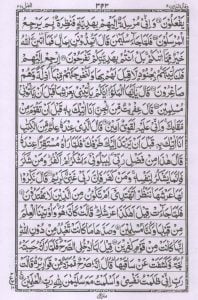 النمل ۲۷
۳۴۳
یَفْعَلُوْنَ وَاِنِّیْ مُرْسِلَةٌ اِلَیْهِمْ بِهَدِیَّةٍ فَنٰظِرَةٌۢ بِمَ یَرْجِعُ
الْمُرْسَلُوْنَ فَلَمَّا جَآءَ سُلَیْمٰنَ قَالَ اَتُمِدُّوْنَنِ بِمَالٍ فَمَاۤ اٰتٰىنِۦَ اللّٰهُ
خَیْرٌ مِّمَّاۤ اٰتٰىكُمْ بَلْ اَنْتُمْ بِهَدِیَّتِكُمْ تَفْرَحُوْنَ اِرْجِعْ اِلَیْهِمْ
فَلَنَاْتِیَنَّهُمْ بِجُنُوْدٍ لَّا قِبَلَ لَهُمْ بِهَا وَلَنُخْرِجَنَّهُمْ مِّنْهَاۤ اَذِلَّةً وَّهُمْ
صٰغِرُوْنَ قَالَ یٰۤاَیُّهَا الْمَلَؤُا اَیُّكُمْ یَاْتِیْنِیْ بِعَرْشِهَا قَبْلَ اَنْ یَّاْتُوْنِیْ
مُسْلِمِیْنَ قَالَ عِفْرِیْتٌ مِّنَ الْجِنِّ اَنَا اٰتِیْكَ بِهٖ قَبْلَ اَنْ تَقُوْمَ مِنْ
مَّقَامِكَ وَاِنِّیْ عَلَیْهِ لَقَوِیٌّ اَمِیْنٌ قَالَ الَّذِیْ عِنْدَهٗ عِلْمٌ مِّنَ الْكِتٰبِ
اَنَا اٰتِیْكَ بِهٖ قَبْلَ اَنْ یَّرْتَدَّ اِلَیْكَ طَرْفُكَ فَلَمَّا رَاٰهُ مُسْتَقِرًّا عِنْدَهٗ
قَالَ هٰذَا مِنْ فَضْلِ رَبِّیْ لِیَبْلُوَنِیْۤ ءَاَشْكُرُ اَمْ اَكْفُرُ وَمَنْ شَكَرَ
فَاِنَّمَا یَشْكُرُ لِنَفْسِهٖ وَمَنْ كَفَرَ فَاِنَّ رَبِّیْ غَنِیٌّ كَرِیْمٌ قَالَ نَكِّرُوْا
لَهَا عَرْشَهَا نَنْظُرْ اَتَهْتَدِیْۤ اَمْ تَكُوْنُ مِنَ الَّذِیْنَ لَا یَهْتَدُوْنَ
فَلَمَّا جَآءَتْ قِیْلَ اَهٰكَذَا عَرْشُكِ قَالَتْ كَاَنَّهٗ هُوَ وَاُوْتِیْنَا الْعِلْمَ
مِنْ قَبْلِهَا وَكُنَّا مُسْلِمِیْنَ وَصَدَّهَا مَا كَانَتْ تَّعْبُدُ مِنْ دُوْنِ اللّٰهِ
اِنَّهَا كَانَتْ مِنْ قَوْمٍ كٰفِرِیْنَ قِیْلَ لَهَا ادْخُلِی الصَّرْحَ فَلَمَّا رَاَتْهُ حَسِبَتْهُ
لُجَّةً وَّكَشَفَتْ عَنْ سَاقَیْهَا قَالَ اِنَّهٗ صَرْحٌ مُّمَرَّدٌ مِّنْ قَوَارِیْرَ قَالَتْ
رَبِّ اِنِّیْ ظَلَمْتُ نَفْسِیْ وَاَسْلَمْتُ مَعَ سُلَیْمٰنَ لِلّٰهِ رَبِّ الْعٰلَمِیْنَ